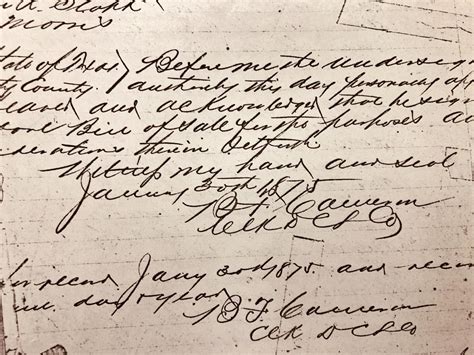 Morris
State of Texas) Before me the undersign
ty County. authority this day personally app
eared and acknowledged that he sign
Bill of Sale for the purposes a
derations therein set forth
Witness my hand and seal
January 30th 1875
B F Cameron
Clk D C L Co
for record Jany 30th 1875. and recor
day & year B. F. Cameron
Clk D C L Co